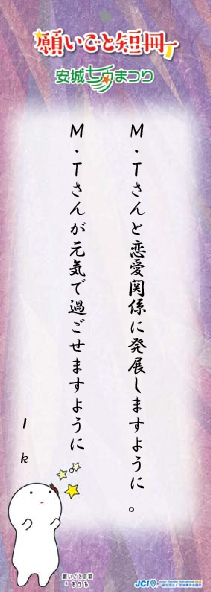 願いごと短冊
安城七夕まつり
M・Tさんと恋愛関係に発展しますように。
M・Tさんが元気で過ごせますように
I k
願いごと短冊
JCI